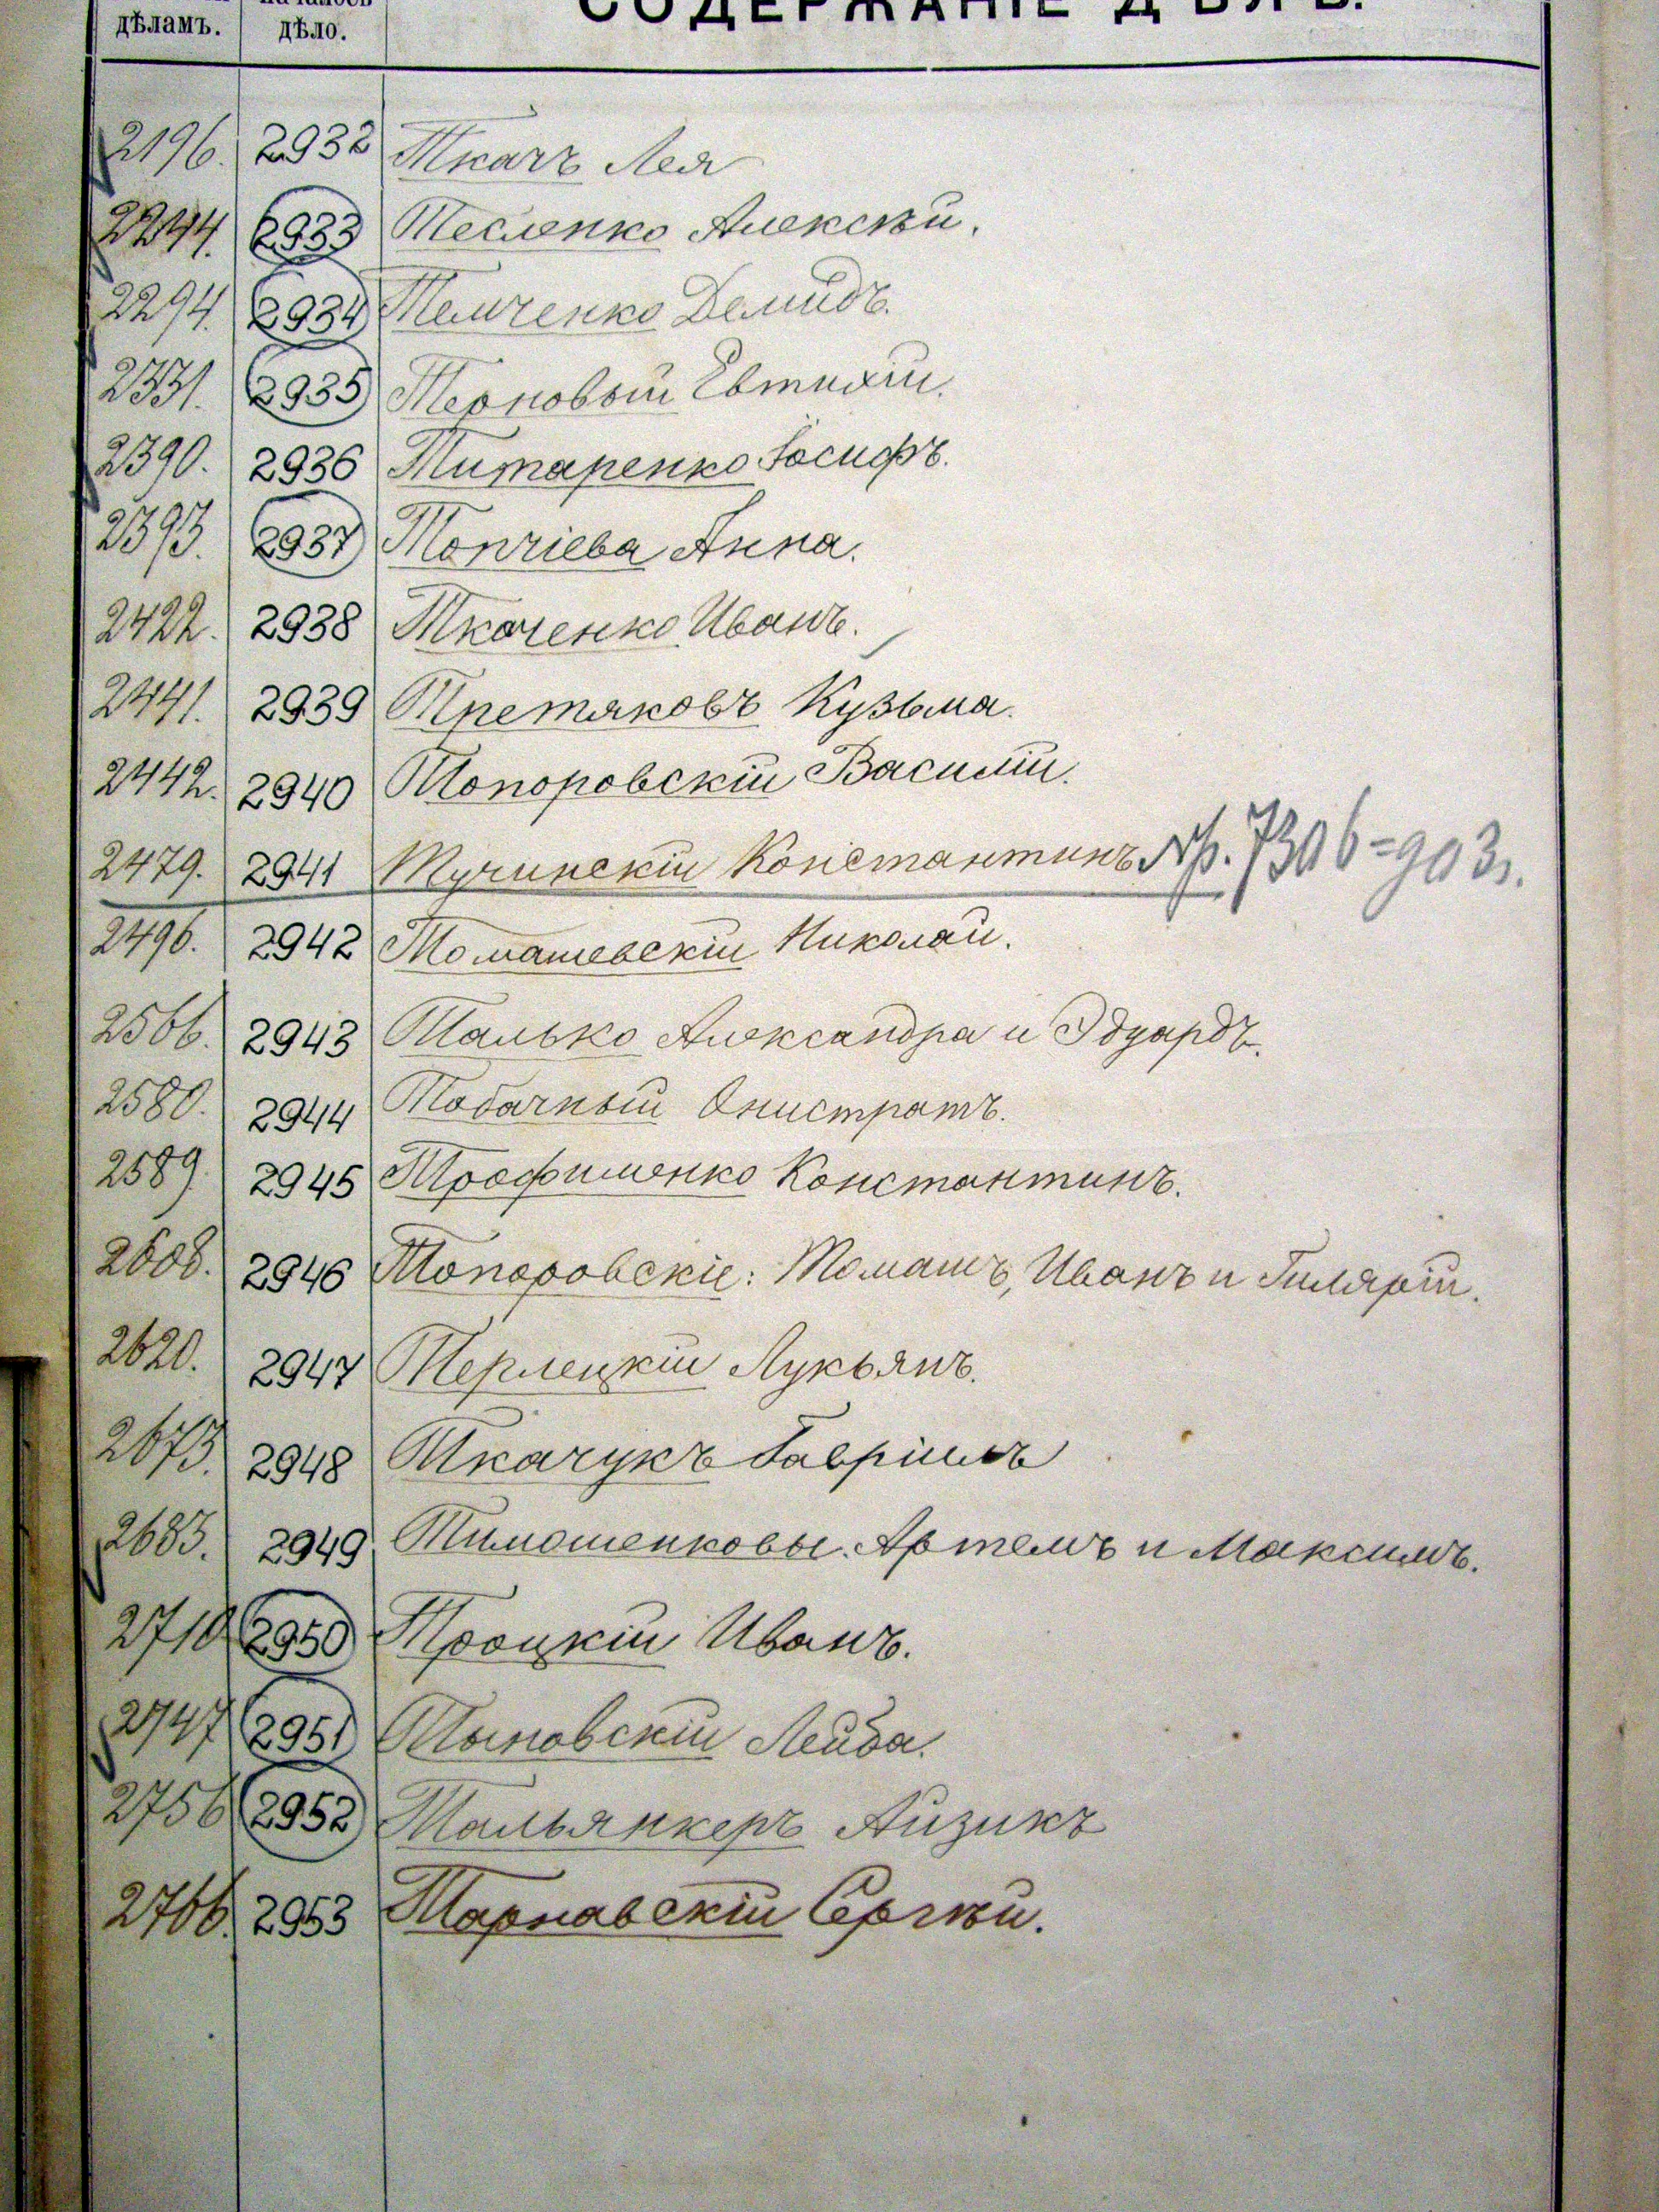 СОДЕРЖАНІЕ ДѢЛЪ.
дѣламъ. дѣло.
2196. 2932 Ткачъ Лея
2244. 2933 Тесленко Алексѣй.
2294. 2934 Темченко Демидъ.
2331. 2935 Терновый Евтихій.
2390. 2936 Титаренко Іосифъ.
2393. 2937 Топчіева Анна.
2422. 2938 Ткаченко Иванъ.
2441. 2939 Третяковъ Кузьма.
2442. 2940 Топоровскій Василій.
2479. 2941 Тучинскій Константинъ Пр. 7306=903г.
2496. 2942 Томашевскій Николай.
2566. 2943 Талько Александра и Эдуардъ.
2580. 2944 Табачный Онистратъ.
2589. 2945 Трофименко Константинъ.
2608. 2946 Топоровскіе: Томашъ, Иванъ и Гилярій.
2620. 2947 Терлецкій Лукьянъ.
2673. 2948 Ткачукъ Гавріилъ
2683. 2949 Тимошенковы. Артемъ и Максимъ.
2710 2950 Троцкій Иванъ.
2747 2951 Тыновскій Лейба.
2756 2952 Тальянкеръ Айзикъ
2766. 2953 Тарнавскій Сергѣй.